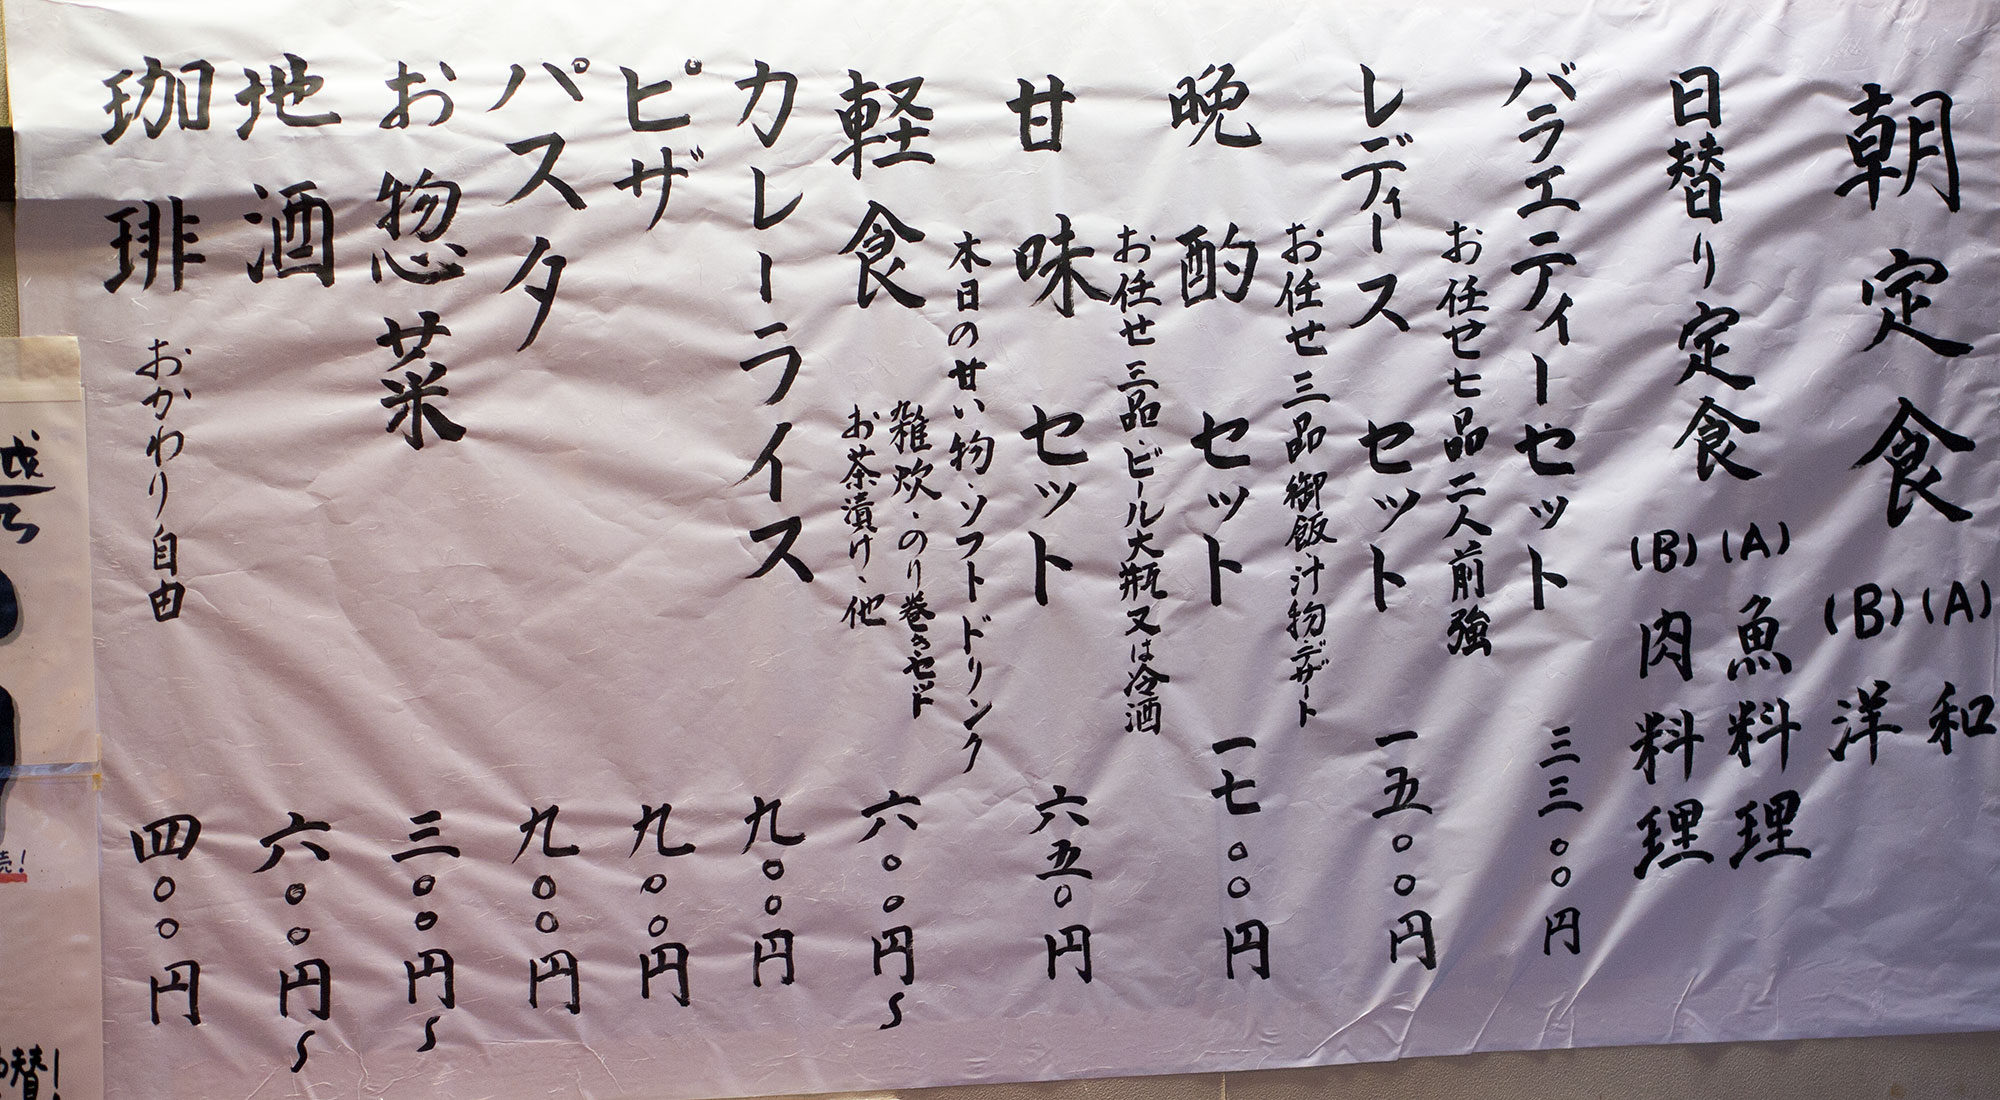 朝定食
(A)和
(B)洋
日替り定食
(A)魚料理
(B)肉料理
バラエティーセット 三三〇〇円
お任せ七品二人前強
レディースセット 一五〇〇円
お任せ三品御飯汁物デザート
晩酌セット 一七〇〇円
お任せ三品・ビール大瓶又は冷酒
甘味セット 六五〇円
本日の甘い物・ソフトドリンク
軽食 六〇〇円〜
雑炊・のり巻きセット
お茶漬け・他
カレーライス 九〇〇円
ピザ 九〇〇円
パスタ 九〇〇円
お惣菜 三〇〇円〜
地酒 六〇〇円〜
珈琲 おかわり自由 四〇〇円